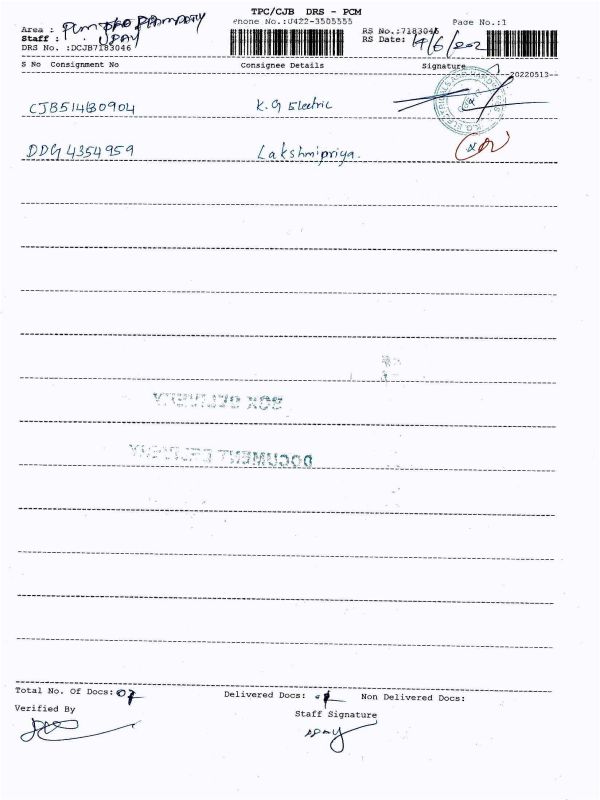 TPC/CJB DRS - PCM
Phone No.:0422-3505555 Page No.:1
Area :
Staff : UDAY
DRS No. :DCJB7183046
RS No.:7183046
RS Date:
S No Consignment No Consignee Details Signature
20220513
CJB514630904 K.G Electric
DDG4354959 Lakshmipriya.
BOX DELIVERY
DOCUMENT DELIVERY
Total No. Of Docs: Delivered Docs: Non Delivered Docs:
Verified By
Staff Signature